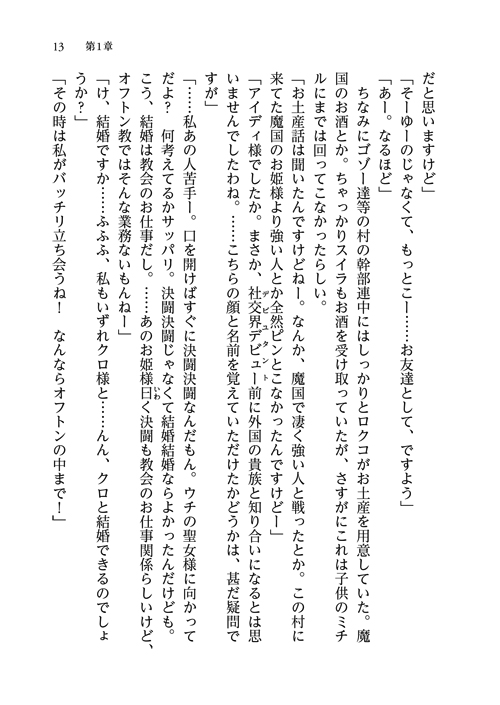 13　第1章
だと思いますけど」
「そーゆーのじゃなくて、もっとこー……お友達として、ですよう」
「あー。なるほど」
　ちなみにゴゾー達等の村の幹部連中にはしっかりとロクコがお土産を用意していた。魔
国のお酒とか。ちゃっかりスイラもお酒を受け取っていたが、さすがにこれは子供のミチ
ルにまでは回ってこなかったらしい。
「お土産話は聞いたんですけどねー。なんか、魔国で凄く強い人と戦ったとか。この村に
来てた魔国のお姫様より強い人とか全然ピンとこなかったんですけどー」
「アイディ様でしたか。まさか、社交界デビュー前に外国の貴族と知り合いになるとは思
デビュタント
いませんでしたわね。……こちらの顔と名前を覚えていただけたかどうかは、甚だ疑問で
すが」
「……私あの人苦手ー。口を開けばすぐに決闘決闘なんだもん。ウチの聖女様に向かって
だよ？　何考えてるかサッパリ。決闘決闘じゃなくて結婚結婚ならよかったんだけども。
こう、結婚は教会のお仕事だし。……あのお姫様曰く決闘も教会のお仕事関係らしいけど、
いわ
オフトン教ではそんな業務ないもんねー」
「け、結婚ですか……ふふふ、私もいずれクロ様と……んん、クロと結婚できるのでしょ
うか？」
「その時は私がバッチリ立ち会うね！　なんならオフトンの中まで！」